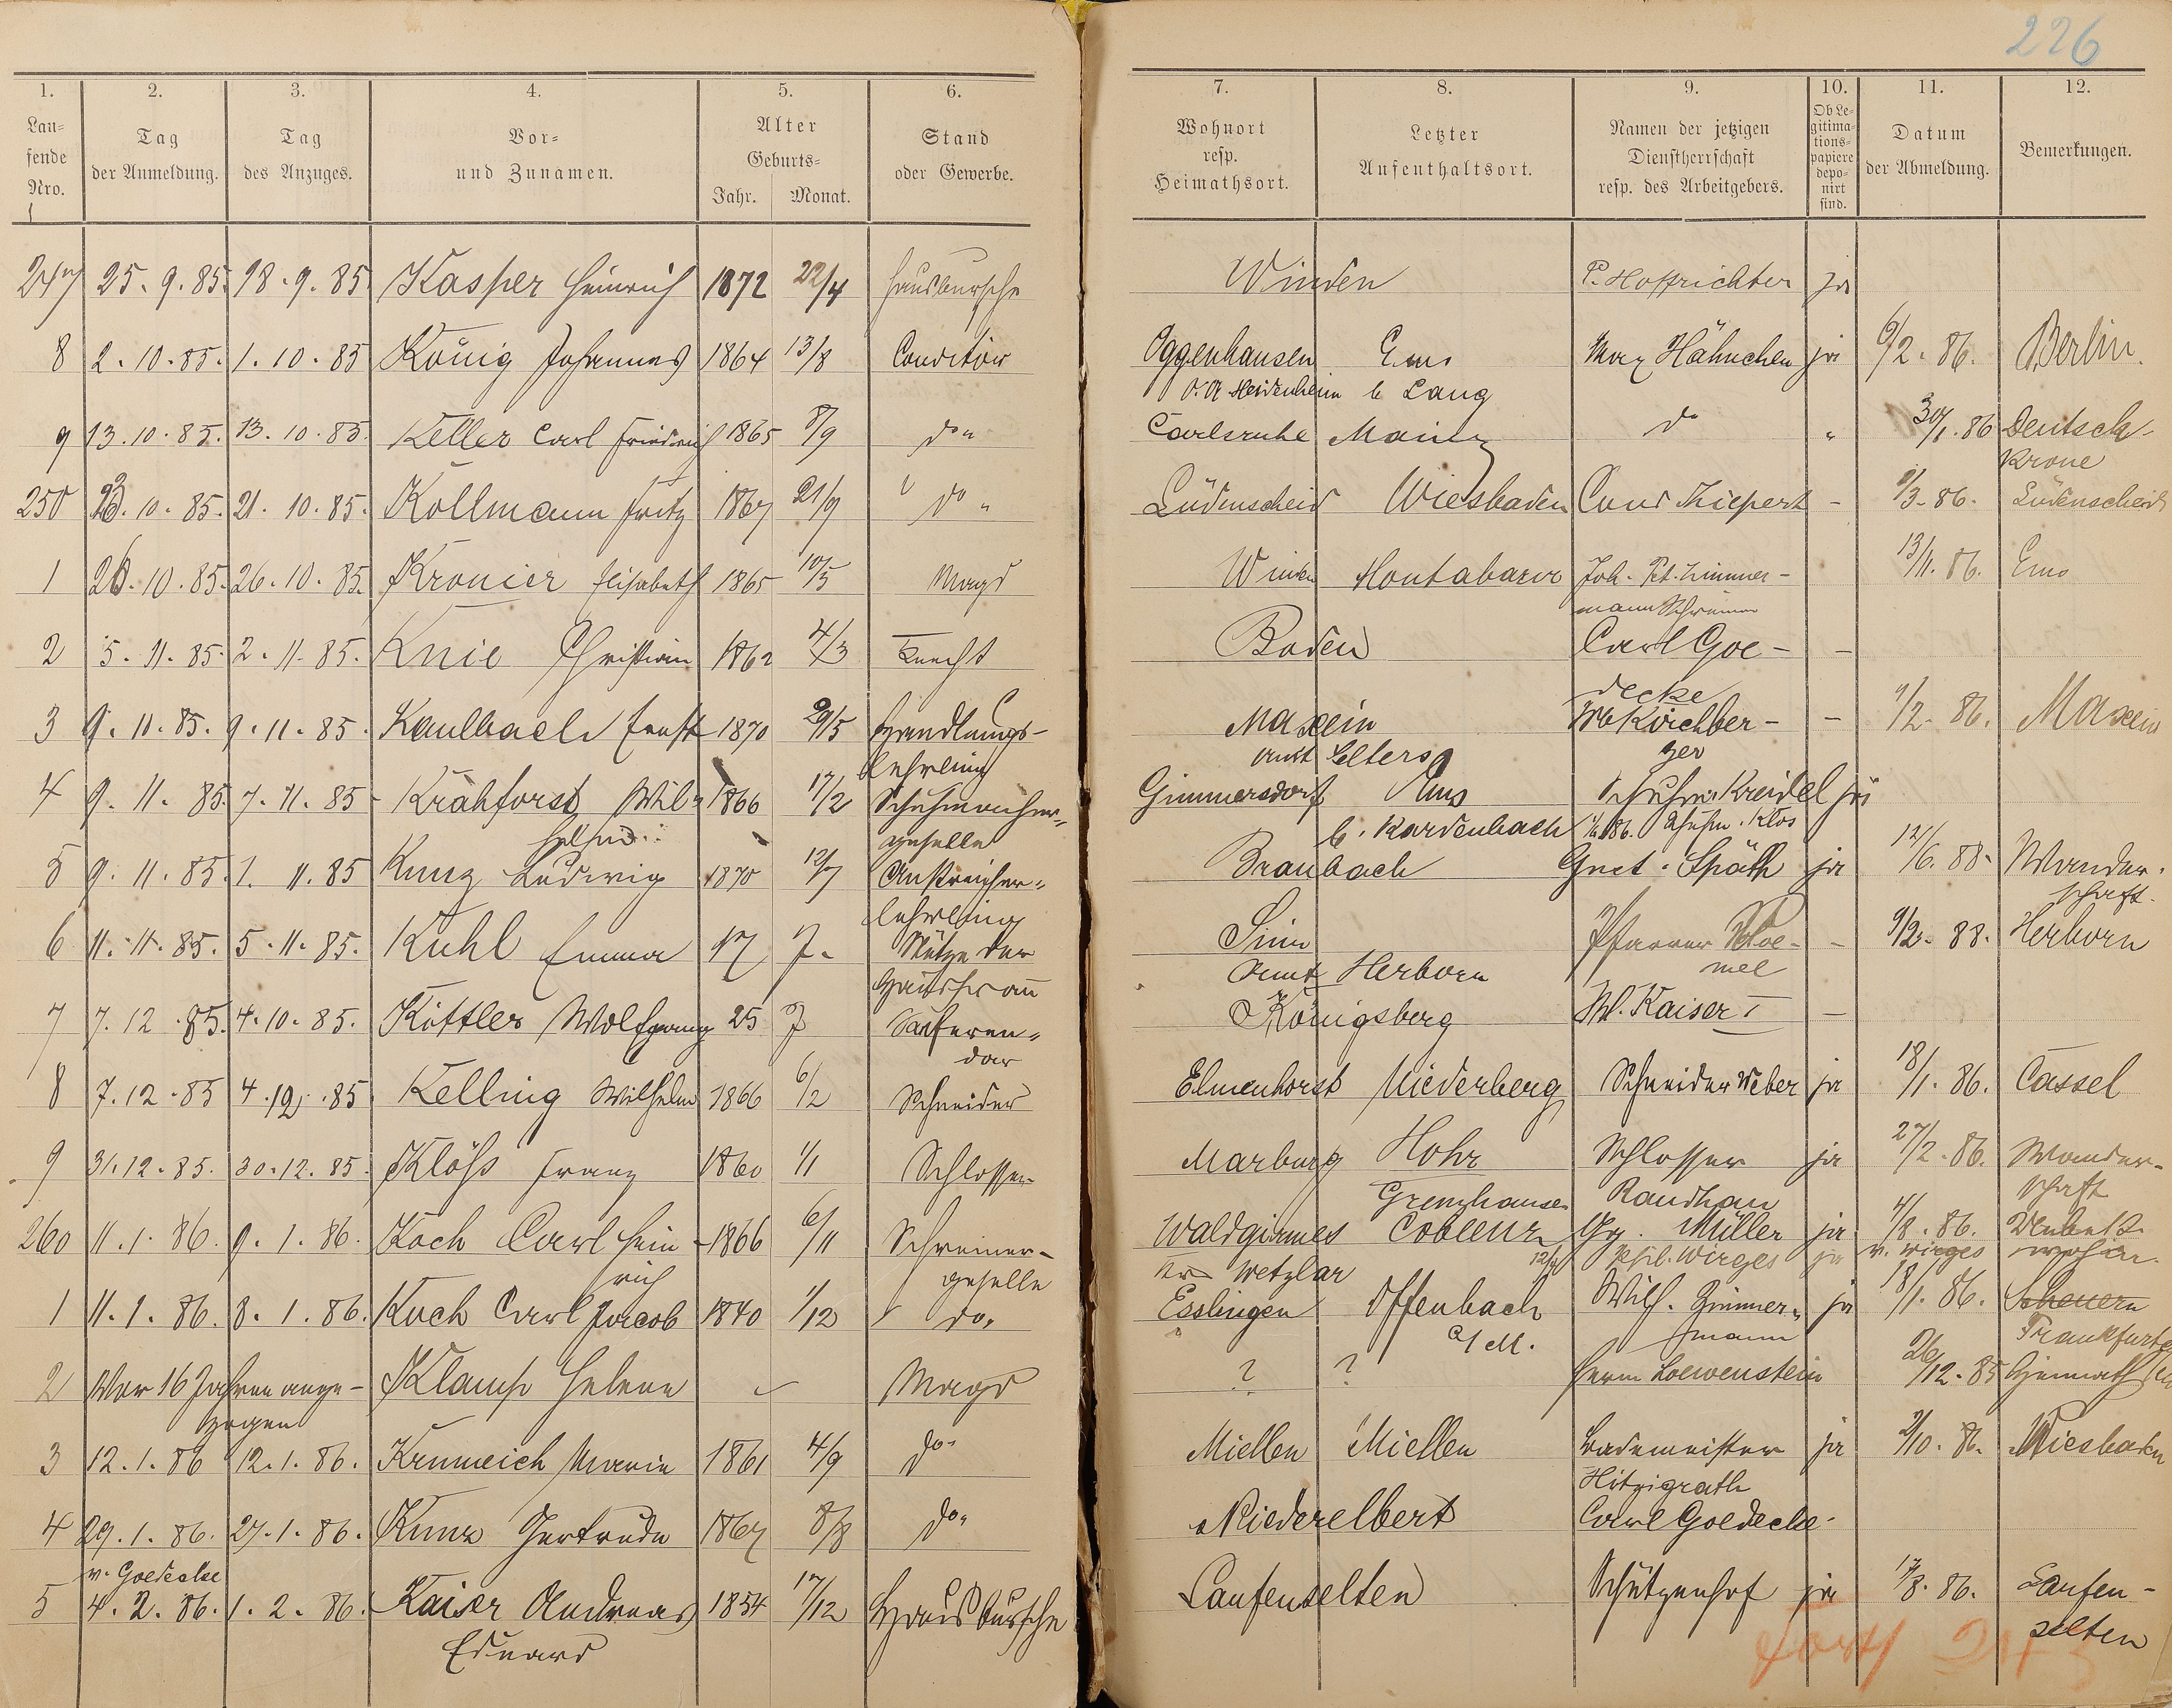 226
1. 2. 3. 4. 5. 6. 7. 8. 9. 10. 11. 12.
Lau=
fende
Nro.
Tag
der Anmeldung.
Tag
des Anzuges.
Vor=
und Zunamen.
Alter
Geburts=
Jahr. Monat.
Stand
oder Gewerbe.
Wohnort
resp.
Heimathsort.
Letzter
Aufenthaltsort.
Namen der jetzigen
Dienstherrschaft
resp. des Arbeitgebers.
Ob Le-
gitima-
tions-
papiere
depo-
nirt
sind.
Datum
der Abmeldung.
Bemerkungen.
247 25. 9. 85. 18. 9. 85. Kasper Heinrich 1872 22/4 Hausbursche Winden P. Hoffrichter ja
8 2. 10. 85. 1. 10. 85 König Johannes 1864 13/8 Conditor Oggenhausen Ems Max Hähnchen ja 6/2. 86. Berlin.
O. A. Heidenheim b Lang
9 13. 10. 85. 13. 10. 85. Keller Carl Friedrich 1865 8/9 do " Carlsruhe Mainz do " 30/1. 86 Deutsch-
Krone
250 23. 10. 85. 21. 10. 85. Kollmann Fritz 1867 21/9 do " Lüdenscheid Wiesbaden Cond Kiepert - /3. 86. Lüdenscheid
1 26. 10. 85. 26. 10. 85. Kronier Elisabeth 1865 10/5 Magd Winden Montabaur Joh. Pet. Zimmer- 13/1. 86. Ems
mann Schreiner
2 5. 11. 85. 2. 11. 85. Knie Christian 1862 4/3 Knecht Baden Carl Goe- -
decke
3 9. 11. 85. 9. 11. 85. Kaulbach Ernst 1870 29/5 Handlungs- Maxein Kirchber- - 9/2. 86. Maxein
lehrling Amt Selters ger
4 9. 11. 85. 7. 11. 85 Krähforst Wilh 1866 17/2 Schuhmacher= Gimmersdorf Ems Schuhm. Kreidel ja
geselle b. Kardenbach Schuhm. Klos
5 9. 11. 85. 1. 11. 85 Kunz Ludwig 1870 12/7 Anstreicher= Braubach Gust. Späth ja 12/6. 88. Wander-
lehrling schaft.
6 11. 11. 85. 5. 11. 85. Kuhl Emma 17 J. Stütze der Sinn Pfarrer - 9/2. 88. Herborn
Hausfrau Amt Herborn mel
7 7. 12. 85. 4. 10. 85. Köttler Wolfgang 25 J Referen= Königsberg W. Kaiser I -
dar
8 7. 12. 85 4. 12. 85 Kelling Wilhelm 1866 6/2 Schneider Elmenhorst Niederberg Schneider Weber ja 18/1. 86. Cassel
9 31. 12. 85. 30. 12. 85. Klöß Franz 1860 1/1 Schlosser Marburg Höhr Schlosser ja 27/2. 86. Wander-
Grenzhausen Raudhan schaft
260 11. 1. 86. 9. 1. 86. Koch Carl Hein- 1866 6/11 Schreiner- Waldgirmes Coblenz Gg. Müller ja 4/8. 86.
rich geselle Wetzlar Wirges ja v. Wirges
1 11. 1. 86. 8. 1. 86. Koch Carl Jacob 1840 1/12 do. Esslingen Offenbach Wilh. Zimmer= ja 18/1. 86. Scheuern
a/M. mann Frankfurt
2 Vor 16 Jahren ange- Klamp Helene Magd ? ? Herm Loewenstein 26/12. 85 Heimath
zogen
3 12. 1. 86 12. 1. 86. Krumeich Maria 1861 4/9 do " Miellen Miellen Bademeister ja 2/10. 86. Wiesbaden
Hitzigrath
4 29. 1. 86. 27. 1. 86. Kunz Gertrude 1867 8/8 do " Niederelbert Carl Goedecke
v. Goedecke
5 4. 2. 86. 1. 2. 86. Kaiser Andreas 1854 17/12 Hausbursche Laufenselten Schützenhof ja 17/8. 86. Laufen-
Eduard selten
Fortf